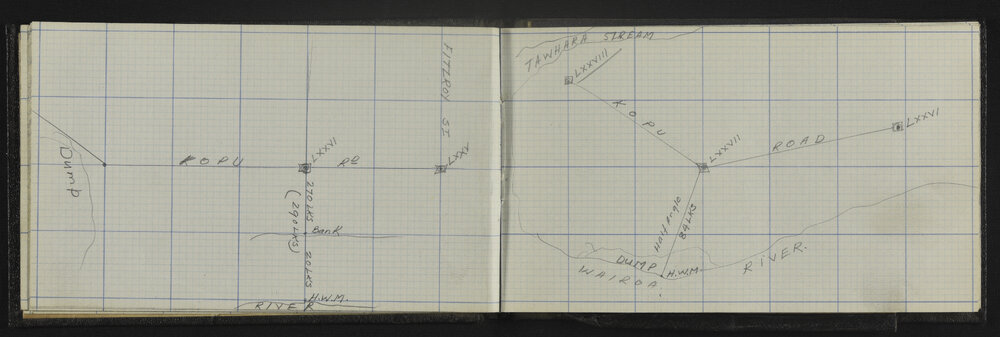 FITZROY ST
Dump
KOPU RD
LXXVI
LXXV
270 LKS
(290 LKS)
Bank
20 LKS
H.W.M.
RIVER
TAWHARA STREAM
LXXVIII
KOPU
LXXVII
ROAD
LXXVI
Half Angle
84 LKS
DUMP
H.W.M.
WAIROA
RIVER.